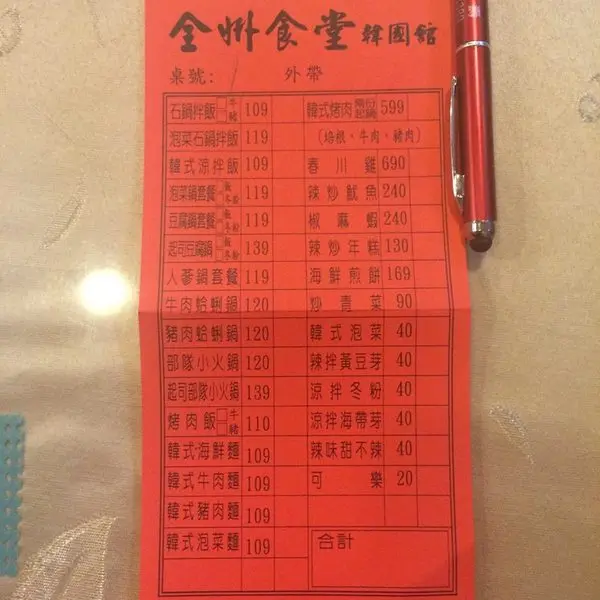 全州食堂 韓國館
桌號: 外帶
石鍋拌飯 牛 豬 109
泡菜石鍋拌飯 119
韓式涼拌飯 109
泡菜鍋套餐 飯 冬粉 119
豆腐鍋套餐 飯 冬粉 119
起司豆腐鍋 飯 冬粉 139
人蔘鍋套餐 119
牛肉蛤蜊鍋 120
豬肉蛤蜊鍋 120
部隊小火鍋 120
起司部隊小火鍋 139
烤肉飯 牛 豬 110
韓式海鮮麵 109
韓式牛肉麵 109
韓式豬肉麵 109
韓式泡菜麵 109
韓式烤肉 兩份起鍋 599
(培根、牛肉、豬肉)
春川雞 690
辣炒魷魚 240
椒麻蝦 240
辣炒年糕 130
海鮮煎餅 169
炒青菜 90
韓式泡菜 40
辣拌黃豆芽 40
涼拌冬粉 40
涼拌海帶芽 40
辣味甜不辣 40
可樂 20
合計